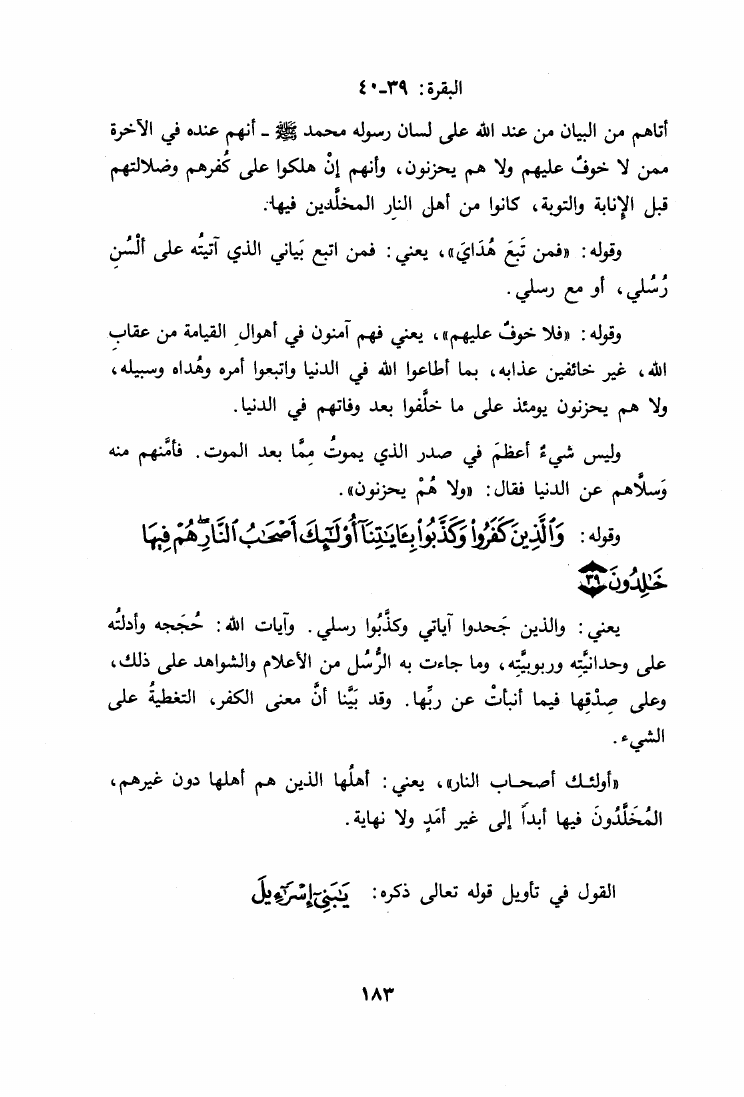 البقرة: ٣٩-٤٠
أتاهم من البيان من عند الله على لسان رسوله محمد ﷺ - أنهم عنده في الآخرة
ممن لا خوفٌ عليهم ولا هم يحزنون، وأنهم إنْ هلكوا على كُفرهم وضلالتهم
قبل الإنابة والتوبة، كانوا من أهل النار المخلَّدين فيها.
وقوله: «فمن تَبعَ هُدَايَ»، يعني: فمن اتبع بَياني الذي آتيتُه على ألْسُنِ
رُسُلي، أو مع رسلي.
وقوله: «فلا خوفٌ عليهم»، يعني فهم آمنون في أهوال القيامة من عقاب
الله، غير خائفين عذابه، بما أطاعوا الله في الدنيا واتبعوا أمره وهُداه وسبيله،
ولا هم يحزنون يومئذ على ما خلَّفوا بعد وفاتهم في الدنيا.
وليس شيءٌ أعظمَ في صدر الذي يموتُ مِمَّا بعد الموت. فأمَّنهم منه
وَسلَّاهم عن الدنيا فقال: «ولا هُمْ يحزنون».
وقوله: وَٱلَّذِينَ كَفَرُوا۟ وَكَذَّبُوا۟ بِـَٔايَـٰتِنَآ أُو۟لَـٰٓئِكَ أَصْحَـٰبُ ٱلنَّارِ ۖ هُمْ فِيهَا
خَـٰلِدُونَ ٣٩
يعني: والذين جَحدوا آياتي وكذَّبُوا رسلي. وآيات الله: حُجَجه وأدلتُه
على وحدانيَّتِه وربوبيَّتِه، وما جاءت به الرُّسُل من الأعلام والشواهد على ذلك،
وعلى صِدْقِها فيما أنبأتْ عن ربِّها. وقد بَيَّنا أنَّ معنى الكفر، التغطيةُ على
الشيء.
«أولئك أصحاب النار»، يعني: أهلُها الذين هم أهلها دون غيرهم،
المُخَلَّدُونَ فيها أبداً إلى غير أمَدٍ ولا نهاية.
القول في تأويل قوله تعالى ذكره: يَـٰبَنِىٓ إِسْرَٰٓءِيلَ
١٨٣